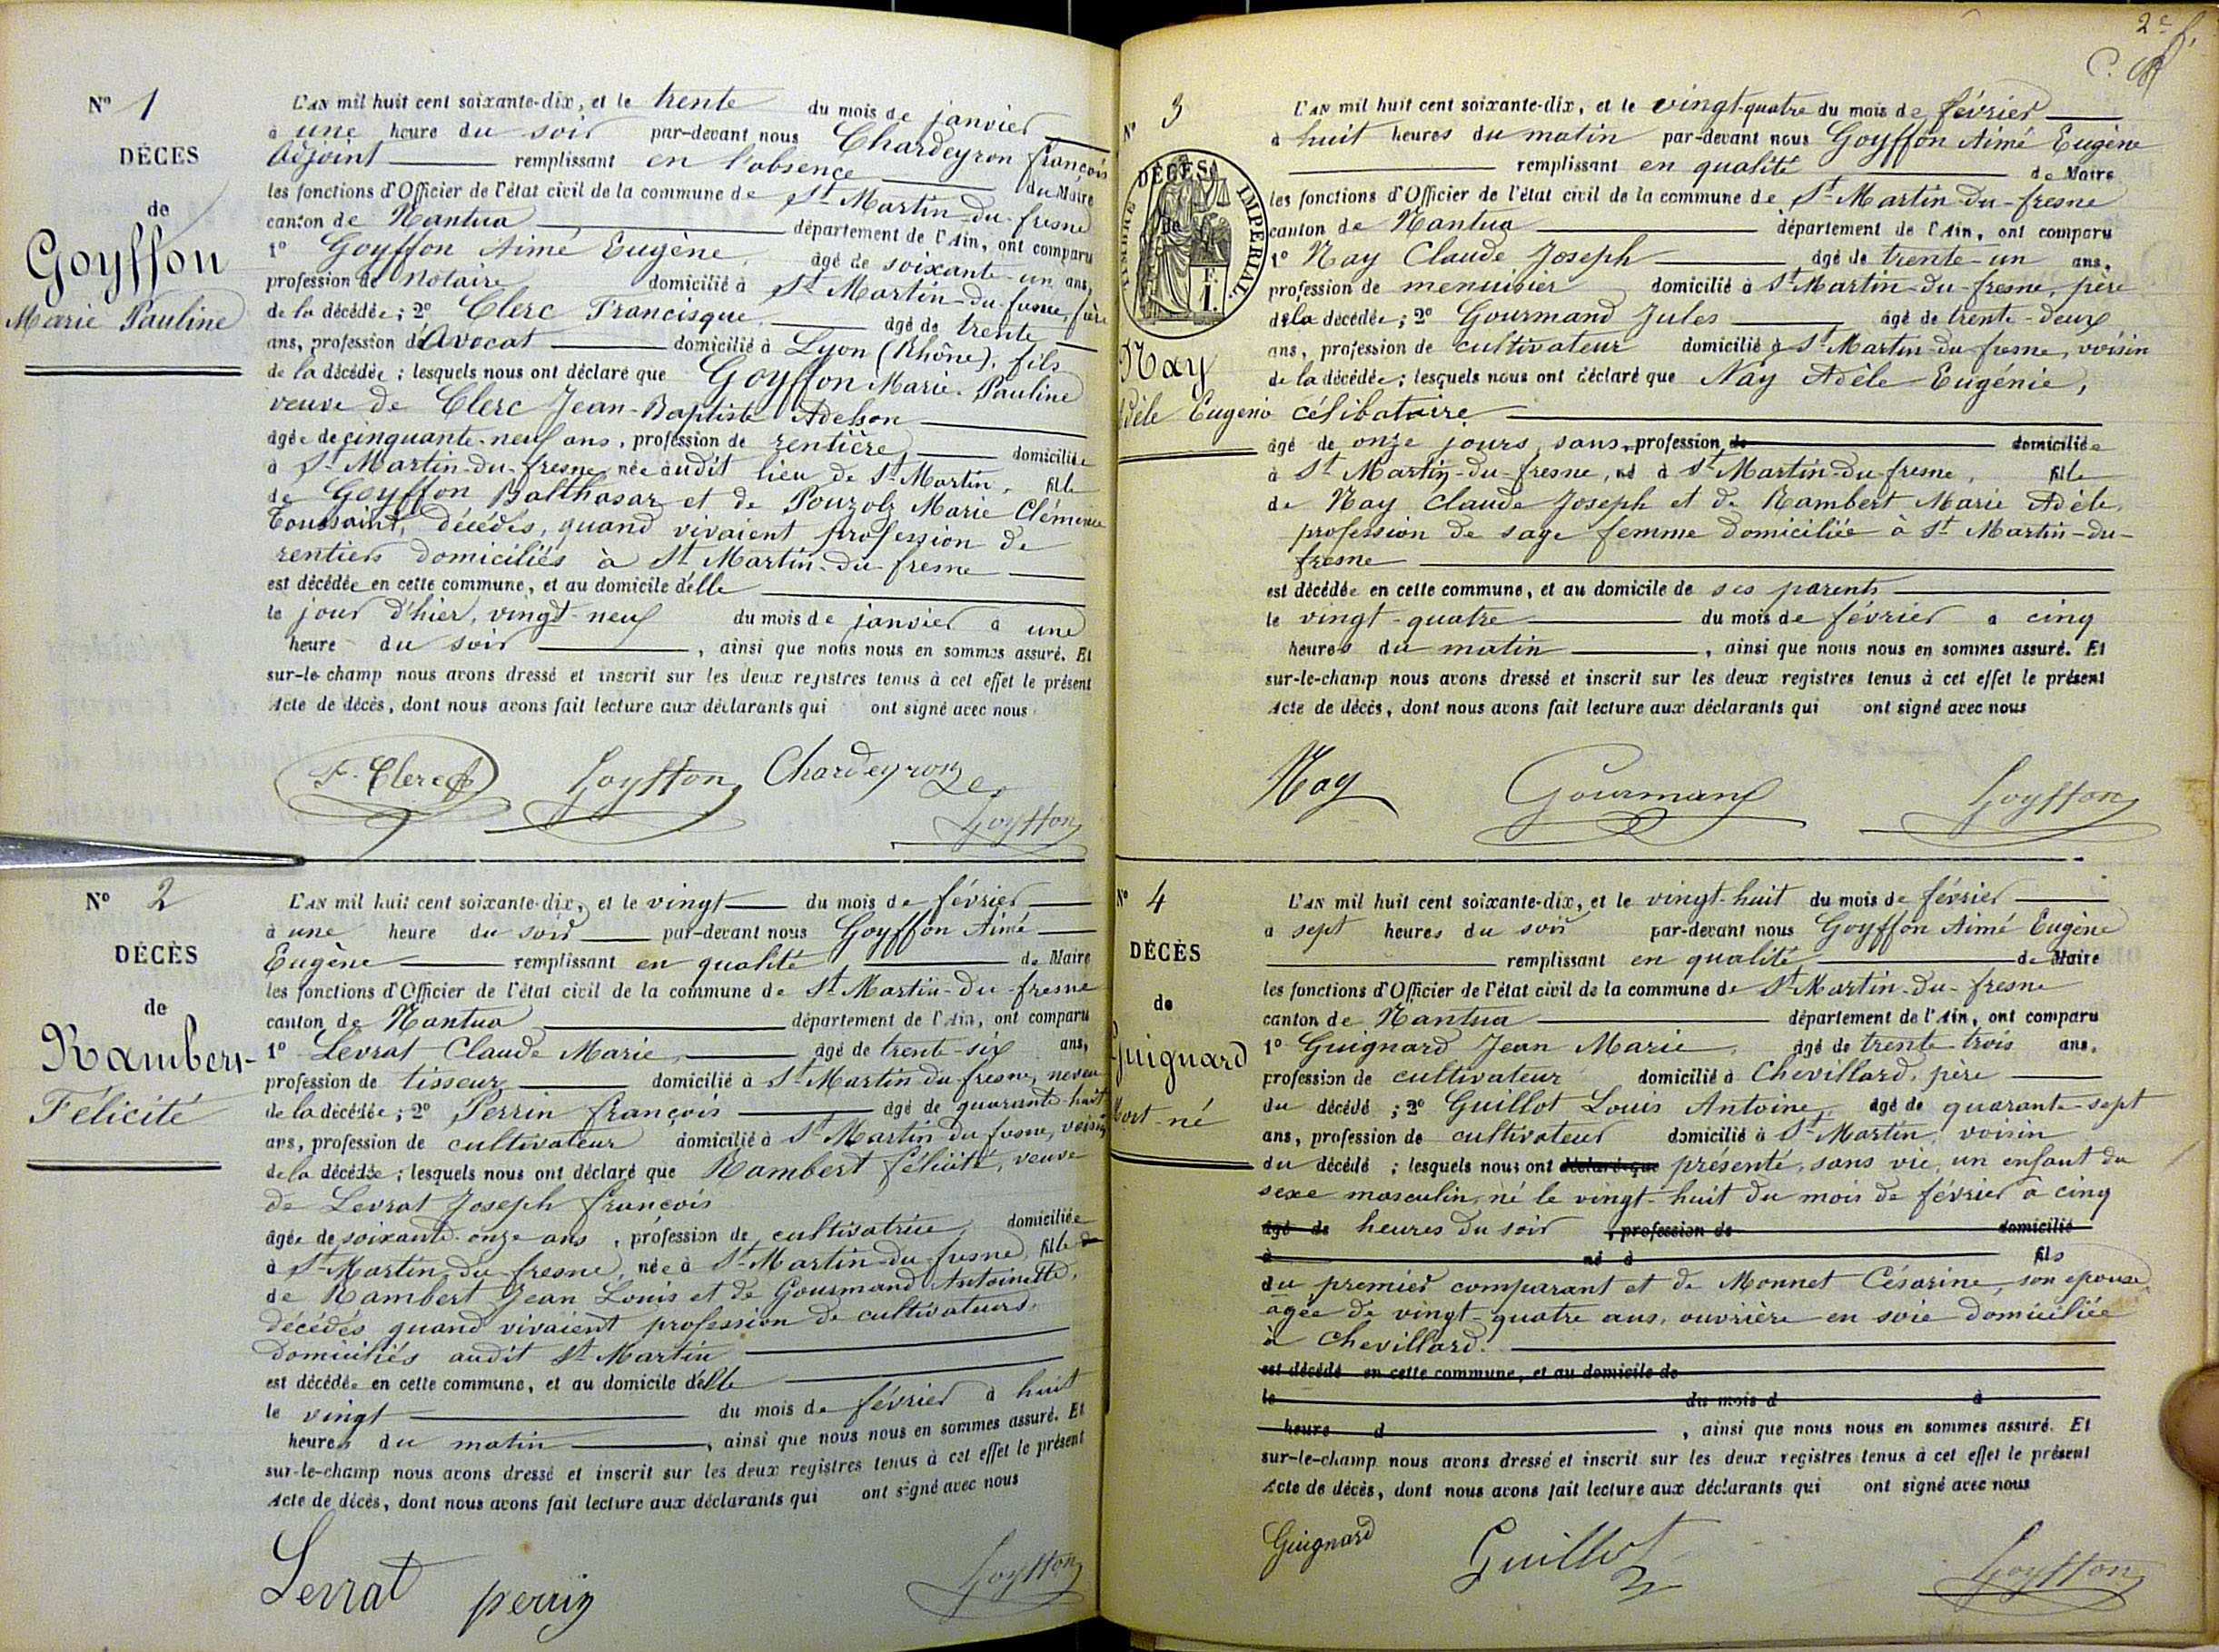 N° 1
DÉCES
de
Goyffon
Marie Pauline
L'AN mil huit cent soixante-dix, et le trente du mois de janvier
à une heure du soir par-devant nous Chardeyron françois
Adjoint remplissant en l'absence du Maire
les fonctions d'Officier de l'état civil de la commune de St Martin-du-fresne
canton de Nantua département de l'Ain, ont comparu
1° Goyffon Aimé Eugène, âgé de soixante-un ans,
profession de notaire domicilié à St Martin-du-fresne, frère
de la décédée; 2° Clerc Francisque, âgé de trente
ans, profession d'Avocat domicilié à Lyon (Rhône), fils
de la décédée; lesquels nous ont déclaré que Goyffon Marie-Pauline
veuve de Clerc Jean-Baptiste Adelson
âgée de cinquante-neuf ans, profession de rentière, domiciliée
à St Martin-du-fresne, née audit lieu de St Martin, fille
de Goyffon Balthasar et de Pouzolz Marie Clémence
Toussaint, décédés, quand vivaient profession de
rentiers domiciliés à St Martin-du-fresne
est décédée en cette commune, et au domicile d'elle
le jour d'hier, vingt-neuf du mois de janvier à une
heure du soir, ainsi que nous nous en sommes assuré. Et
sur-le-champ nous avons dressé et inscrit sur les deux registres tenus à cet effet le présent
Acte de décès, dont nous avons fait lecture aux déclarants qui ont signé avec nous
F. Clerc Goyffon Chardeyron
Goyffon
N° 2
DÉCÈS
de
Rambert
Félicité
L'AN mil huit cent soixante-dix, et le vingt du mois de février
à une heure du soir par-devant nous Goyffon Aimé
Eugène remplissant en qualité de Maire
les fonctions d'Officier de l'état civil de la commune de St Martin-du-fresne
canton de Nantua département de l'Ain, ont comparu
1° Levrat Claude Marie, âgé de trente-six ans,
profession de tisseur domicilié à St Martin du fresne, neveu
de la décédée; 2° Perrin françois âgé de quarante-huit
ans, profession de cultivateur domicilié à St Martin du fresne, voisin
de la décédée; lesquels nous ont déclaré que Rambert félicité, veuve
de Levrat Joseph françois
âgée de soixante-onze ans, profession de cultivatrice, domiciliée
à St Martin du fresne, née à St Martin-du-fresne, fille
de Rambert Jean Louis et de Gourmand Antoinette,
décédés quand vivaient profession de cultivateurs,
domiciliés audit St Martin
est décédée en cette commune, et au domicile d'elle
le vingt du mois de février à huit
heures du matin, ainsi que nous nous en sommes assuré. Et
sur-le-champ nous avons dressé et inscrit sur les deux registres tenus à cet effet le présent
Acte de décès, dont nous avons fait lecture aux déclarants qui ont signé avec nous
Levrat perrin Goyffon
2e f.
N° 3
DÉCÈS
de
TIMBRE IMPERIAL
1 F.
Nay
Adèle Eugénie
L'AN mil huit cent soixante-dix, et le vingt-quatre du mois de février
à huit heures du matin par-devant nous Goyffon Aimé Eugène
remplissant en qualité de Maire
les fonctions d'Officier de l'état civil de la commune de St Martin-du-fresne
canton de Nantua département de l'Ain, ont comparu
1° Nay Claude Joseph âgé de trente-un ans,
profession de menuisier domicilié à St Martin-du-fresne, père
de la décédée; 2° Gourmand Jules âgé de trente-deux
ans, profession de cultivateur domicilié à St Martin-du-fresne, voisin
de la décédée; lesquels nous ont déclaré que Nay Adèle Eugénie,
célibataire
âgé de onze jours, sans profession de domiciliée
à St Martin-du-fresne, né à St Martin-du-fresne, fille
de Nay Claude Joseph et de Rambert Marie Adèle,
profession de sage femme domiciliée à St Martin-du-
fresne
est décédée en cette commune, et au domicile de ses parents
le vingt-quatre du mois de février à cinq
heures du matin, ainsi que nous nous en sommes assuré. Et
sur-le-champ nous avons dressé et inscrit sur les deux registres tenus à cet effet le présent
Acte de décès, dont nous avons fait lecture aux déclarants qui ont signé avec nous
Nay Gourmand Goyffon
N° 4
DÉCÈS
de
Guignard
Mort-né
L'AN mil huit cent soixante-dix, et le vingt-huit du mois de février
à sept heures du soir par-devant nous Goyffon Aimé Eugène
remplissant en qualité de Maire
les fonctions d'Officier de l'état civil de la commune de St Martin-du-fresne
canton de Nantua département de l'Ain, ont comparu
1° Guignard Jean Marie, âgé de trente trois ans,
profession de cultivateur domicilié à Chevillard, père
du décédé; 2° Guillot Louis Antoine, âgé de quarante-sept
ans, profession de cultivateur domicilié à St Martin, voisin
du décédé; lesquels nous ont déclaré que présenté, sans vie, un enfant du
sexe masculin, né le vingt-huit du mois de février à cinq
âgé de heures du soir, profession de domicilié
à né à fils
du premier comparant et de Monnet Césarine, son épouse
âgée de vingt-quatre ans, ouvrière en soie domiciliée
à Chevillard.
est décédé en cette commune, et au domicile de
le du mois d à
heure d, ainsi que nous nous en sommes assuré. Et
sur-le-champ nous avons dressé et inscrit sur les deux registres tenus à cet effet le présent
Acte de décès, dont nous avons fait lecture aux déclarants qui ont signé avec nous
Guignard Guillot Goyffon